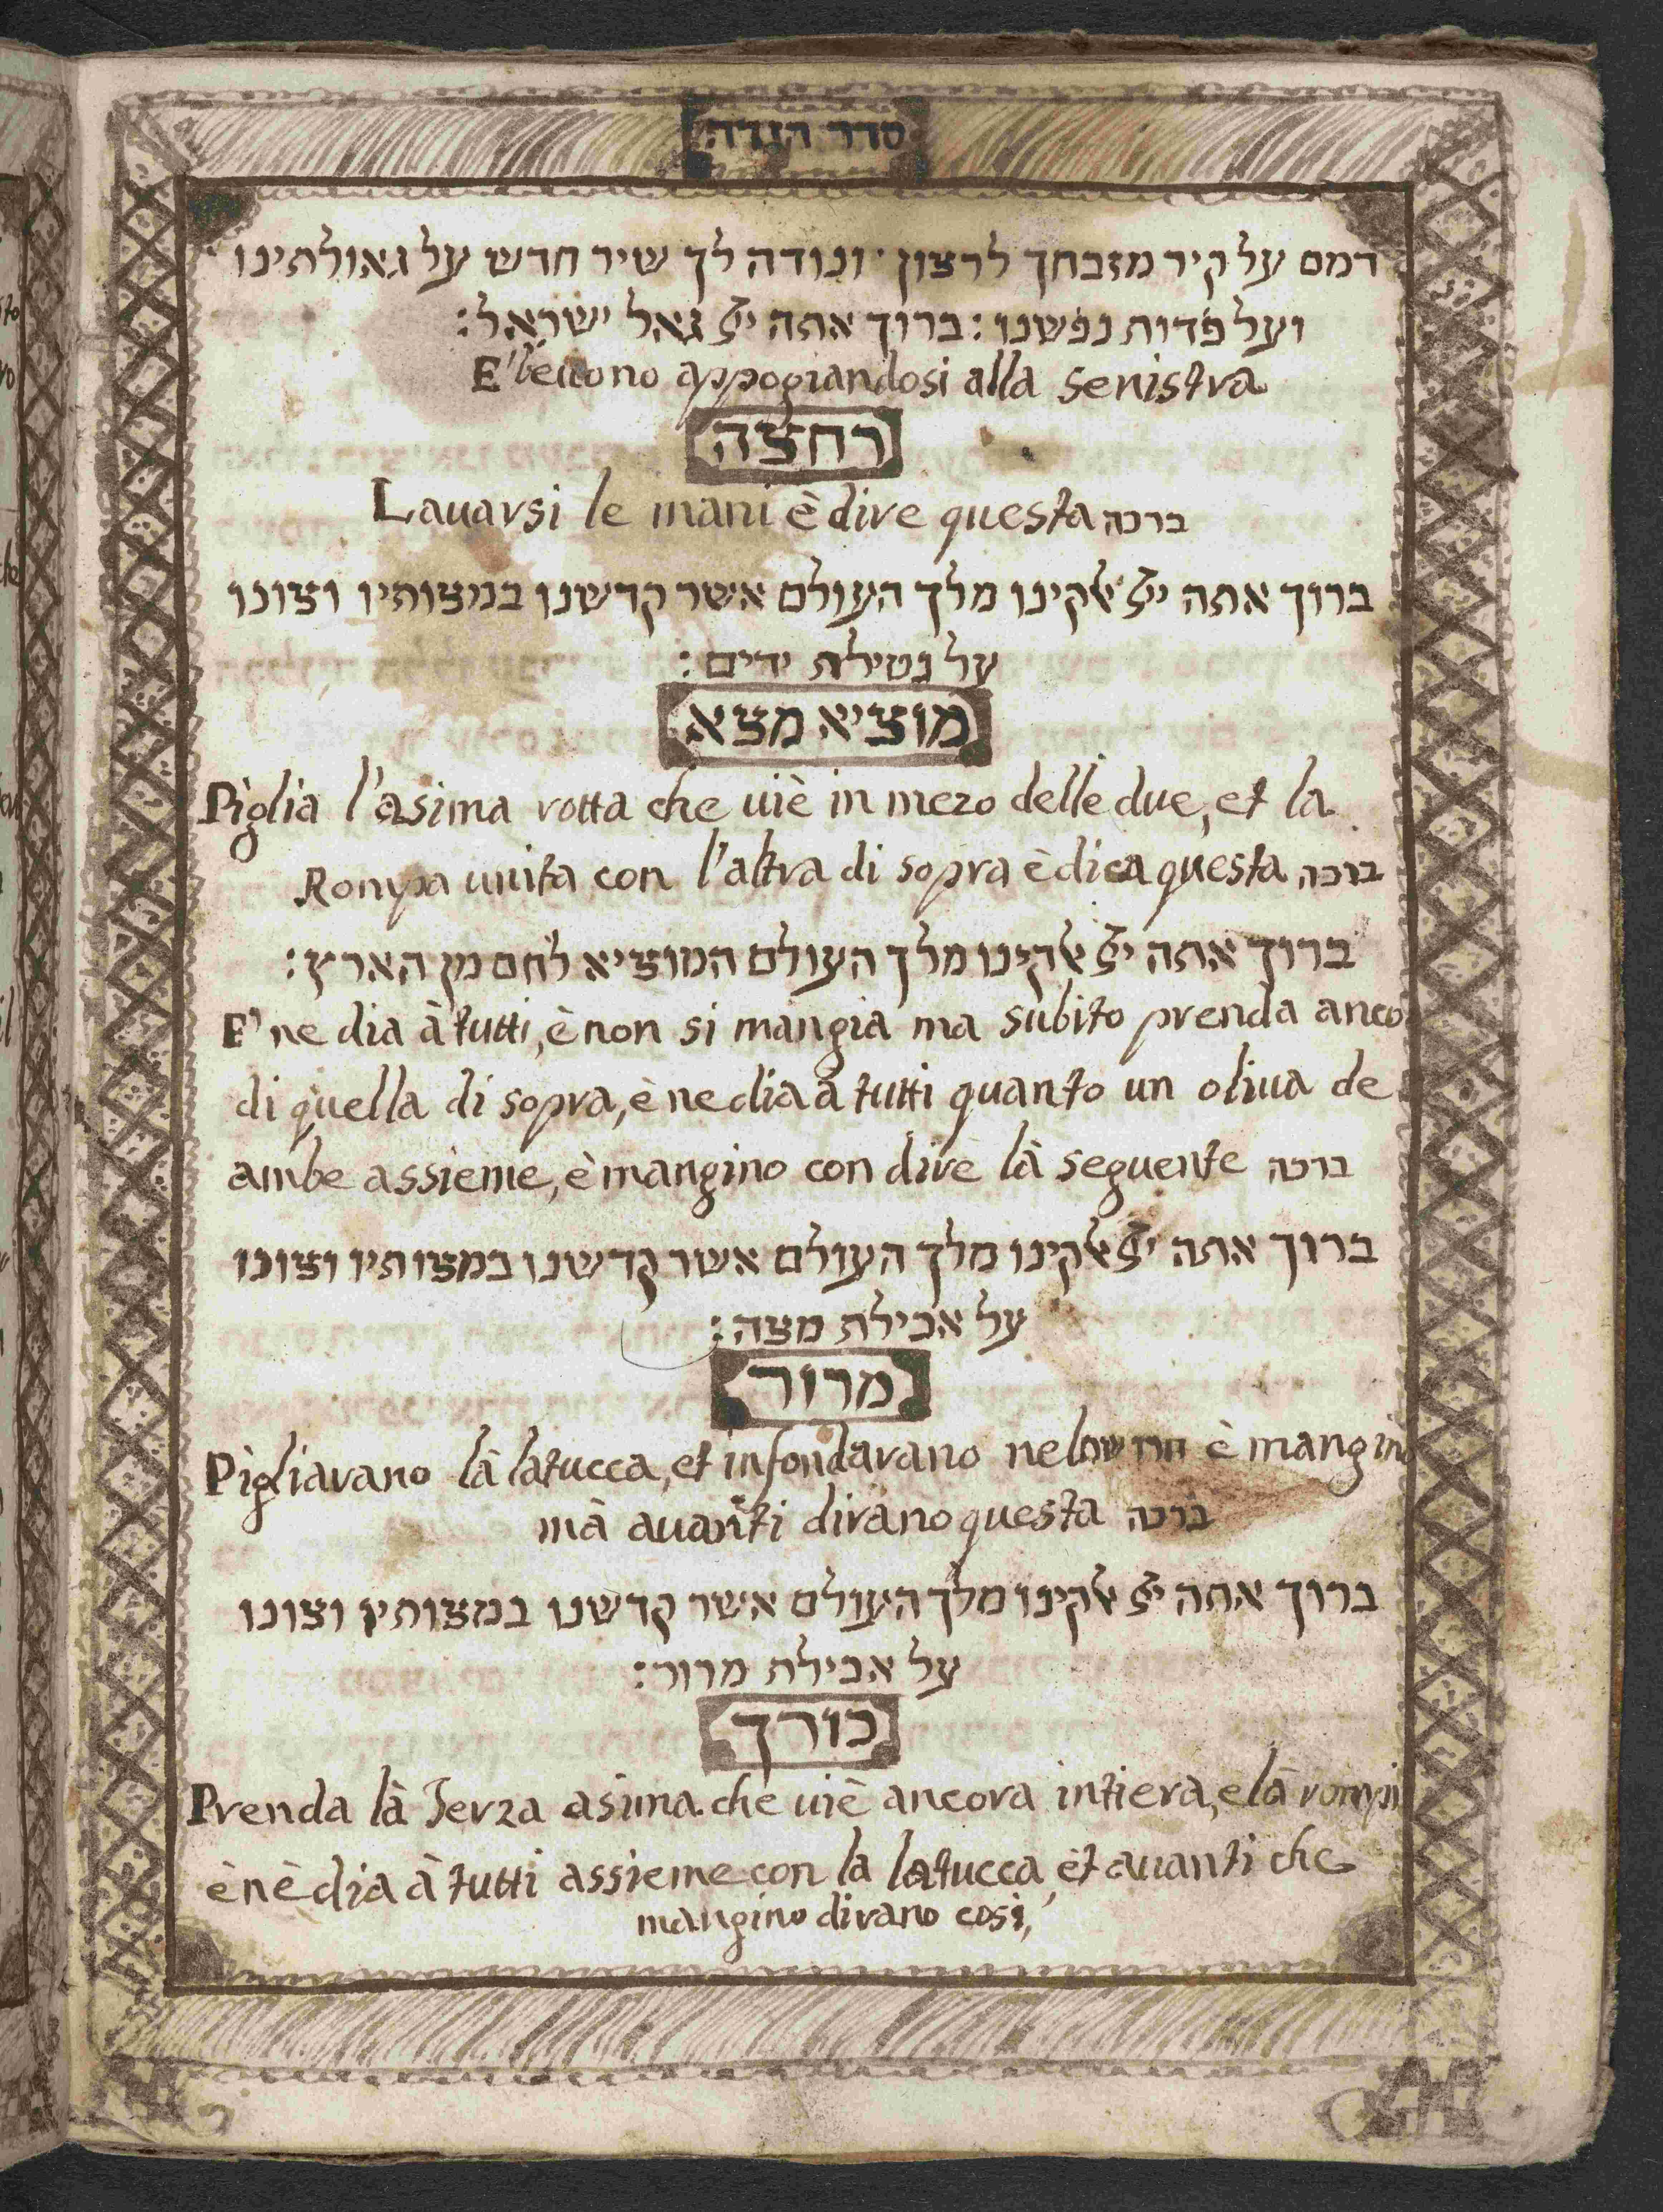 סדר הגדה
דמם על קיר מזבחך לרצון ונודה לך שיר חדש על גאולתינו
ועל פדות נפשנו : ברוך אתה יי גאל ישראל :
E' beuono appogiandosi alla senistra
רחצה
Lauarsi le mani è dire questa ברכה
ברוך אתה יי אלקינו מלך העולם אשר קדשנו במצותיו וצונו
על נטילת ידים :
מוציא מצא
Piglia l'asima rotta che uiè in mezo delle due, et la
Rompa unita con l'altra di sopra è dica questa ברכה
ברוך אתה יי אלקינו מלך העולם המוציא לחם מן הארץ :
E' ne dia à tutti, è non si mangia ma subito prenda anco
di quella di sopra, è ne dia à tutti quanto un oliua de
ambe assieme, è mangino con dire là seguente ברכה
ברוך אתה יי אלקינו מלך העולם אשר קדשנו במצותיו וצונו
על אכילת מצה :
מרור
Pigliarano là latucca, et infondarano nel חרושת è mangin
mà auanti dirano questa ברכה
ברוך אתה יי אלקינו מלך העולם אשר קדשנו במצותיו וצונו
על אכילת מרור :
כורך
Prenda là Terza asima che uiè ancora intiera, e là rompi
è nè dia à tutti assieme con la latucca, èt auanti che
mangino dirano cosi,